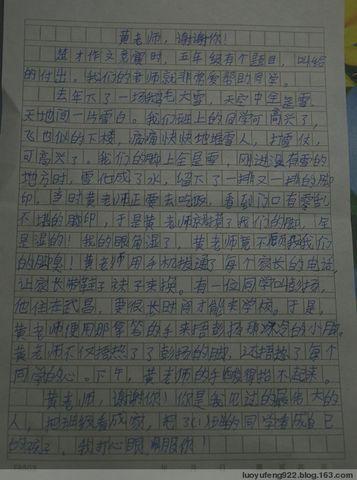 黄老师,谢谢你!
楚才作文竞赛时,五年级有个题目,叫给
的付出。我们的老师就非常爱帮助同学。
去年下了一场鹅毛大雪,天空中全是雪,
天地间一片雪白。我们班上的同学可高兴了,
飞也似的下楼,痛痛快快地堆雪人,打雪仗,
可高兴了。我们的脚上全是雪,刚进没有雪的
地方时,雪化成了水,留下了一排又一排的脚
印。当时黄老师正要去吃饭,看到门口有零乱
不堪的脚印,于是黄老师摸了我们的脚,全
是湿的!我的眼角湿了,黄老师竟不顾我们
的脚臭!黄老师用手机拨通了每个家长的电话,
让家长带鞋子袜子来换。有一位同学叫彭扬,
他住在武昌,要很长时间才能来学校。于是,
黄老师便用那宽容的手来捂彭扬那冰冷的小脚。
黄老师不仅捂热了彭扬的脚,还捂热了每个
同学的心。下午,黄老师的手酸得抬不起来。
黄老师,谢谢你!你是我见过的最伟大的
人,把班级看成家,把了(1)班的同学看成自己
的孩子,我打心眼里佩服你!
luoyufeng922.blog.163.com